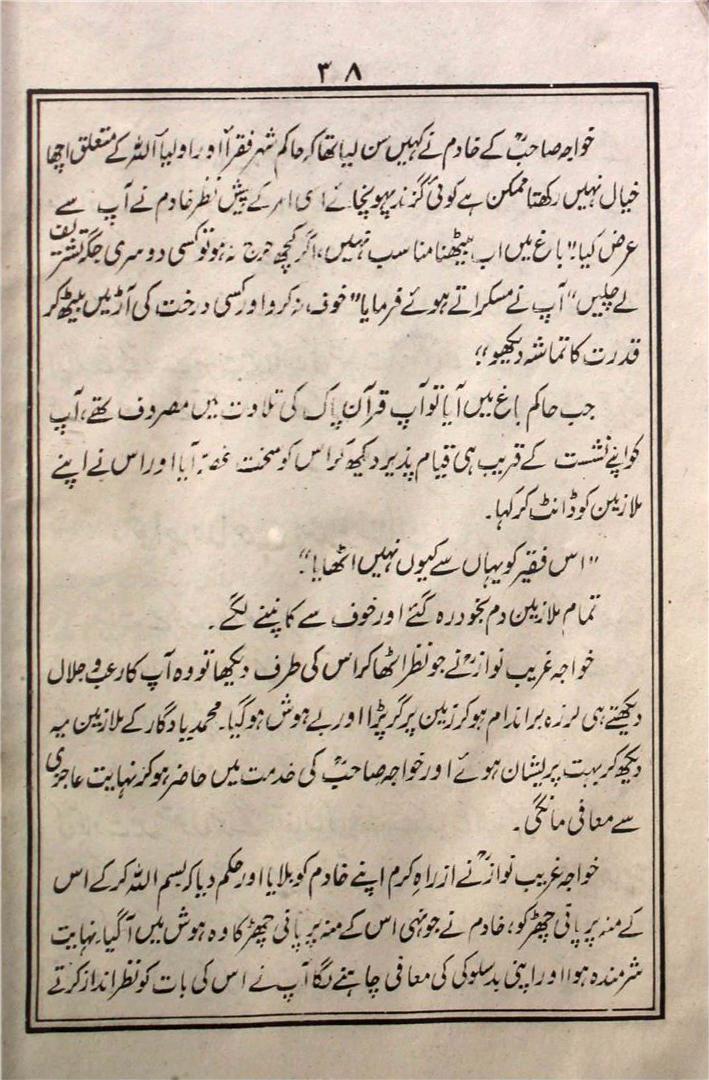 ۳۸
خواجہ صاحبؒ کے خادم نے کہیں سن لیا تھا کہ حاکم شہر فقرأ اور اولیأ اللہ کے متعلق اچھا
خیال نہیں رکھتا ممکن ہے کوئی گزند پہونچائے اسی امر کے پیش نظر خادم نے آپ سے
عرض کیا "باغ میں اب بیٹھنا مناسب نہیں، اگر کچھ حرج نہ ہو تو کسی دوسری جگہ تشریف
لے چلیں" آپ نے مسکراتے ہوئے فرمایا "خوف نہ کرو اور کسی درخت کی آڑ میں بیٹھ کر
قدرت کا تماشہ دیکھو"
جب حاکم باغ میں آیا تو آپ قرآن پاک کی تلاوت میں مصروف تھے، آپ
کو اپنے نشست کے قریب ہی قیام پذیر دیکھ کر اس کو سخت غصہ آیا اور اس نے اپنے
ملازمین کو ڈانٹ کر کہا۔
"اس فقیر کو یہاں سے کیوں نہیں اٹھایا"
تمام ملازمین دم بخود رہ گئے اور خوف سے کانپنے لگے۔
خواجہ غریب نوازؒ نے جو نظر اٹھا کر اس کی طرف دیکھا تو وہ آپ کا رعب و جلال
دیکھتے ہی لرزہ براندام ہو کر زمین پر گر پڑا اور بے ہوش ہو گیا۔ محمد یادگار کے ملازمین یہ
دیکھ کر بہت پریشان ہوئے اور خواجہ صاحبؒ کی خدمت میں حاضر ہو کر نہایت عاجزی
سے معافی مانگی۔
خواجہ غریب نوازؒ نے از راہِ کرم اپنے خادم کو بلایا اور حکم دیا کہ بسم اللہ کر کے اس
کے منہ پر پانی چھڑکو، خادم نے جونہی اس کے منہ پر پانی چھڑکا وہ ہوش میں آگیا۔ نہایت
شرمندہ ہوا اور اپنی بدسلوکی کی معافی چاہنے لگا آپ نے اس کی بات کو نظر انداز کرتے